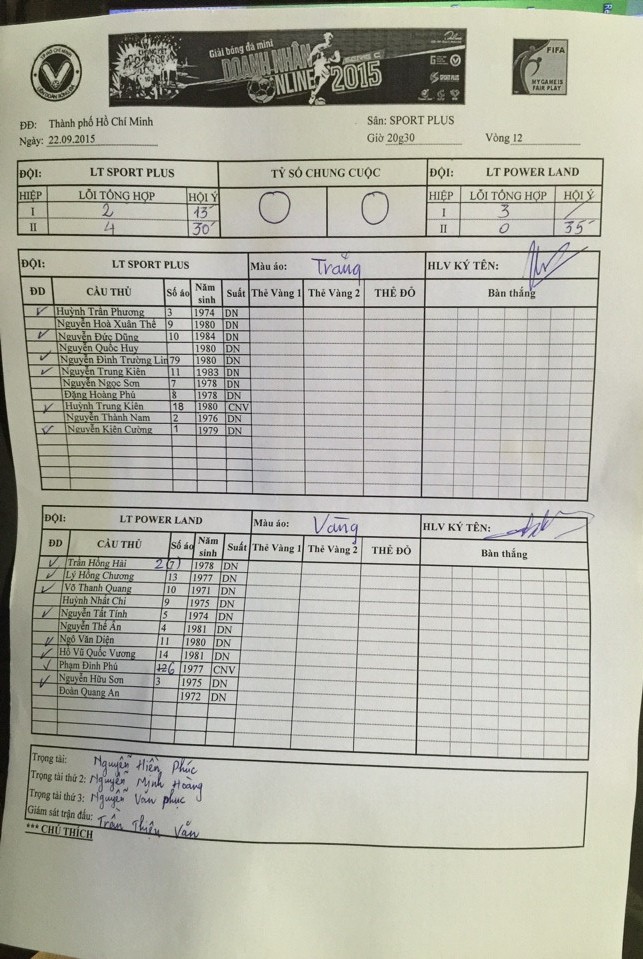 TP HỒ CHÍ MINH
LIÊN ĐOÀN BÓNG ĐÁ
Giải bóng đá mini
DOANH NHÂN
ONLINE 2015
SPORT PLUS
FIFA
MY GAME IS
FAIR PLAY
ĐĐ: Thành phố Hồ Chí Minh Sân: SPORT PLUS
Ngày: 22.09.2015 Giờ 20g30 Vòng 12
ĐỘI: LT SPORT PLUS TỶ SỐ CHUNG CUỘC ĐỘI: LT POWER LAND
HIỆP LỖI TỔNG HỢP HỘI Ý O O HIỆP LỖI TỔNG HỢP HỘI Ý
I 2 13' I 3 /
II 4 30' II 0 35'
ĐỘI: LT SPORT PLUS Màu áo: Trắng HLV KÝ TÊN:
ĐD CẦU THỦ Số áo Năm sinh Suất Thẻ Vàng 1 Thẻ Vàng 2 THẺ ĐỎ Bàn thắng
Huỳnh Trần Phương 3 1974 DN
Nguyễn Hoà Xuân Thê 9 1980 DN
Nguyễn Đức Dũng 10 1984 DN
Nguyễn Quốc Huy 1980 DN
Nguyễn Đình Trường Lin 79 1980 DN
Nguyễn Trung Kiên 11 1983 DN
Nguyễn Ngọc Sơn 7 1978 DN
Đặng Hoàng Phú 8 1978 DN
Huỳnh Trung Kiên 18 1980 CNV
Nguyễn Thành Nam 2 1976 DN
Nguyễn Kiên Cường 1 1979 DN
ĐỘI: LT POWER LAND Màu áo: Vàng HLV KÝ TÊN:
ĐD CẦU THỦ Số áo Năm sinh Suất Thẻ Vàng 1 Thẻ Vàng 2 THẺ ĐỎ Bàn thắng
Trần Hồng Hải 2(7) 1978 DN
Lý Hồng Chương 13 1977 DN
Võ Thanh Quang 10 1971 DN
Huỳnh Nhất Chi 9 1975 DN
Nguyễn Tất Tính 5 1974 DN
Nguyễn Thế Ân 4 1981 DN
Ngô Văn Diện 11 1980 DN
Hồ Vũ Quốc Vương 14 1981 DN
Phạm Đình Phú 6 1977 CNV
Nguyễn Hữu Sơn 3 1975 DN
Đoàn Quang An 1972 DN
Trọng tài: Nguyễn Hiền Phúc
Trọng tài thứ 2: Nguyễn Minh Hoàng
Trọng tài thứ 3: Nguyễn Văn Phục
Giám sát trận đấu: Trần Thiện Văn
*** CHÚ THÍCH